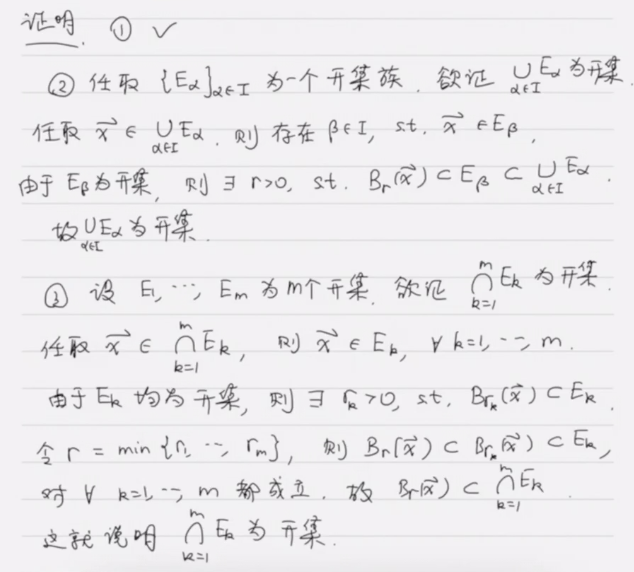 证明. ① ✓
② 任取 {Eα}α∈I 为一个开集族. 欲证 ∪α∈I Eα 为开集.
任取 x⃗ ∈ ∪α∈I Eα. 则存在 β∈I, s.t. x⃗ ∈ Eβ,
由于 Eβ 为开集, 则 ∃ r>0, s.t. Br(x⃗) ⊂ Eβ ⊂ ∪α∈I Eα.
故 ∪α∈I Eα 为开集.
③ 设 E1, ⋯, Em 为 m个开集. 欲证 ∩_{k=1}^{m} Ek 为开集.
任取 x⃗ ∈ ∩_{k=1}^{m} Ek, 则 x⃗ ∈ Ek, ∀ k=1, ⋯, m.
由于 Ek 均为开集, 则 ∃ rk>0, s.t. Brk(x⃗) ⊂ Ek.
令 r = min {r1, ⋯, rm}, 则 Br(x⃗) ⊂ Brk(x⃗) ⊂ Ek,
对 ∀ k=1, ⋯, m 都成立. 故 Br(x⃗) ⊂ ∩_{k=1}^{m} Ek.
这就说明 ∩_{k=1}^{m} Ek 为开集.